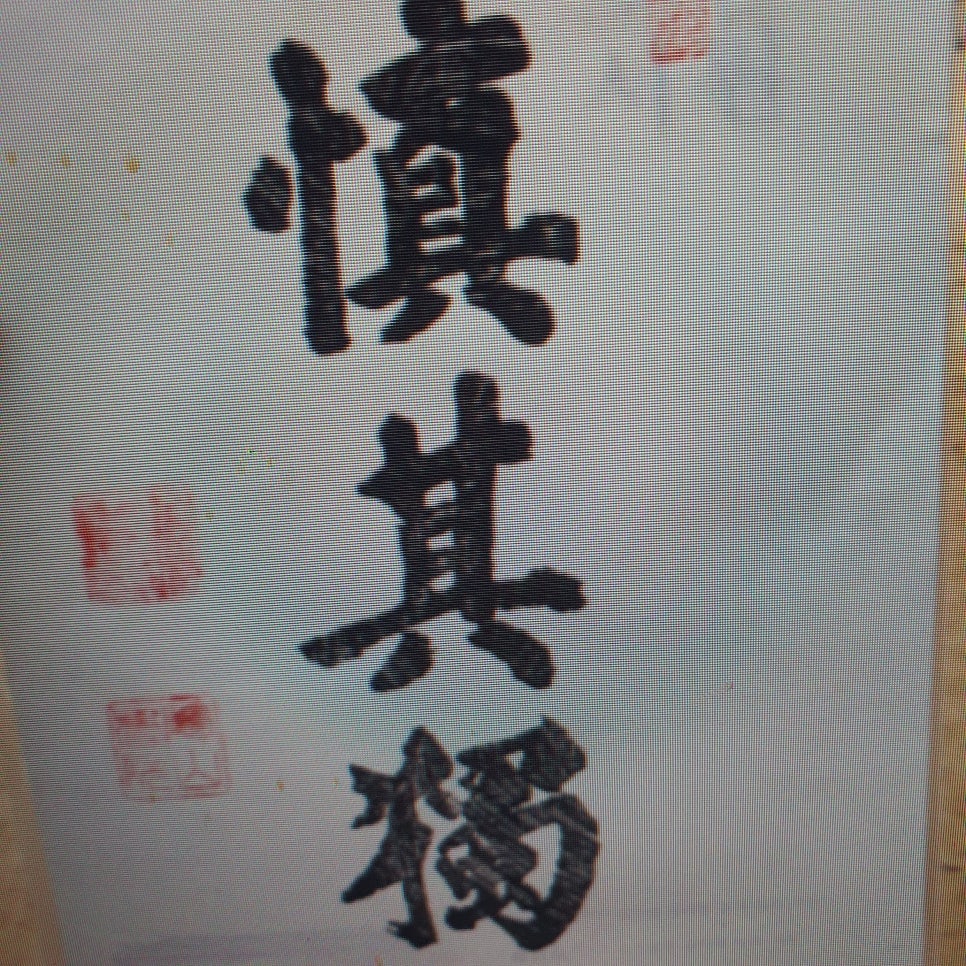 慎其獨